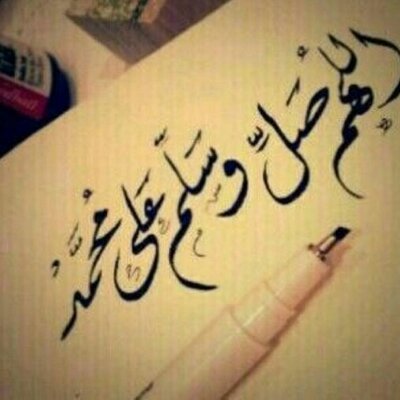 اللهم صَلِّ وَسَلِّم عَلى مُحمَّدٍ